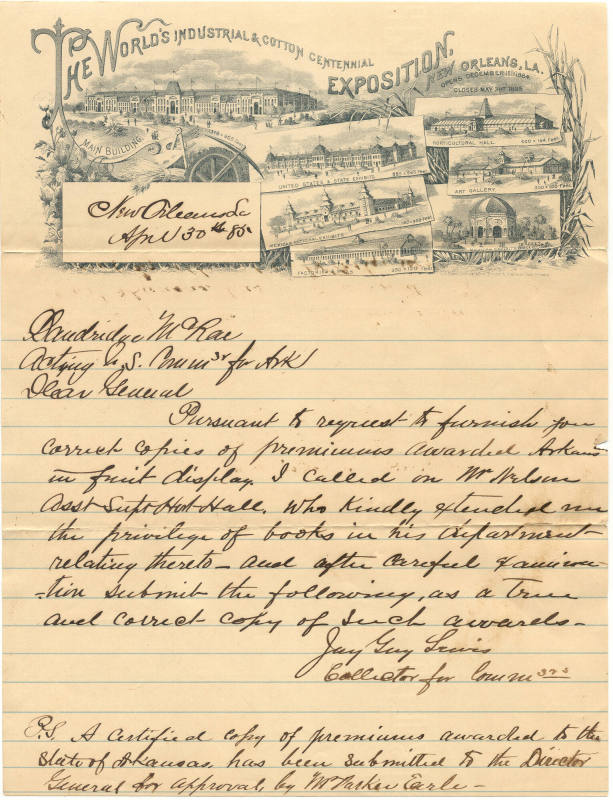 The World's Industrial & Cotton Centennial
Exposition,
New Orleans, La.
Opens December 1st 1884.
Closes May 31st 1885
Main Building
1378 × 905 Feet
United States & State Exhibits
Horticultural Hall.
600 × 194 Feet
Art Gallery
Mexican Special Exhibits
Factories
350 × 120 Feet
New Orleans La
April 30th 85
Dandridge McRae
Acting U.S. Commsr for Ark
Dear General
Pursuant to request to furnish you
correct copies of premiums awarded Arkans
in fruit display. I called on Mr Nelson
Asst Supt Hort Hall, who kindly extended me
the privilige of books in his department
relating thereto - and after careful examina-
-tion submit the following, as a true
and correct copy of such awards -
Jay Guy Lewis
Collector for Commsrs
P.S. A certified copy of premiums awarded to the
State of Arkansas, has been submitted to the Director
General for approval, by Mr Parker Earle -